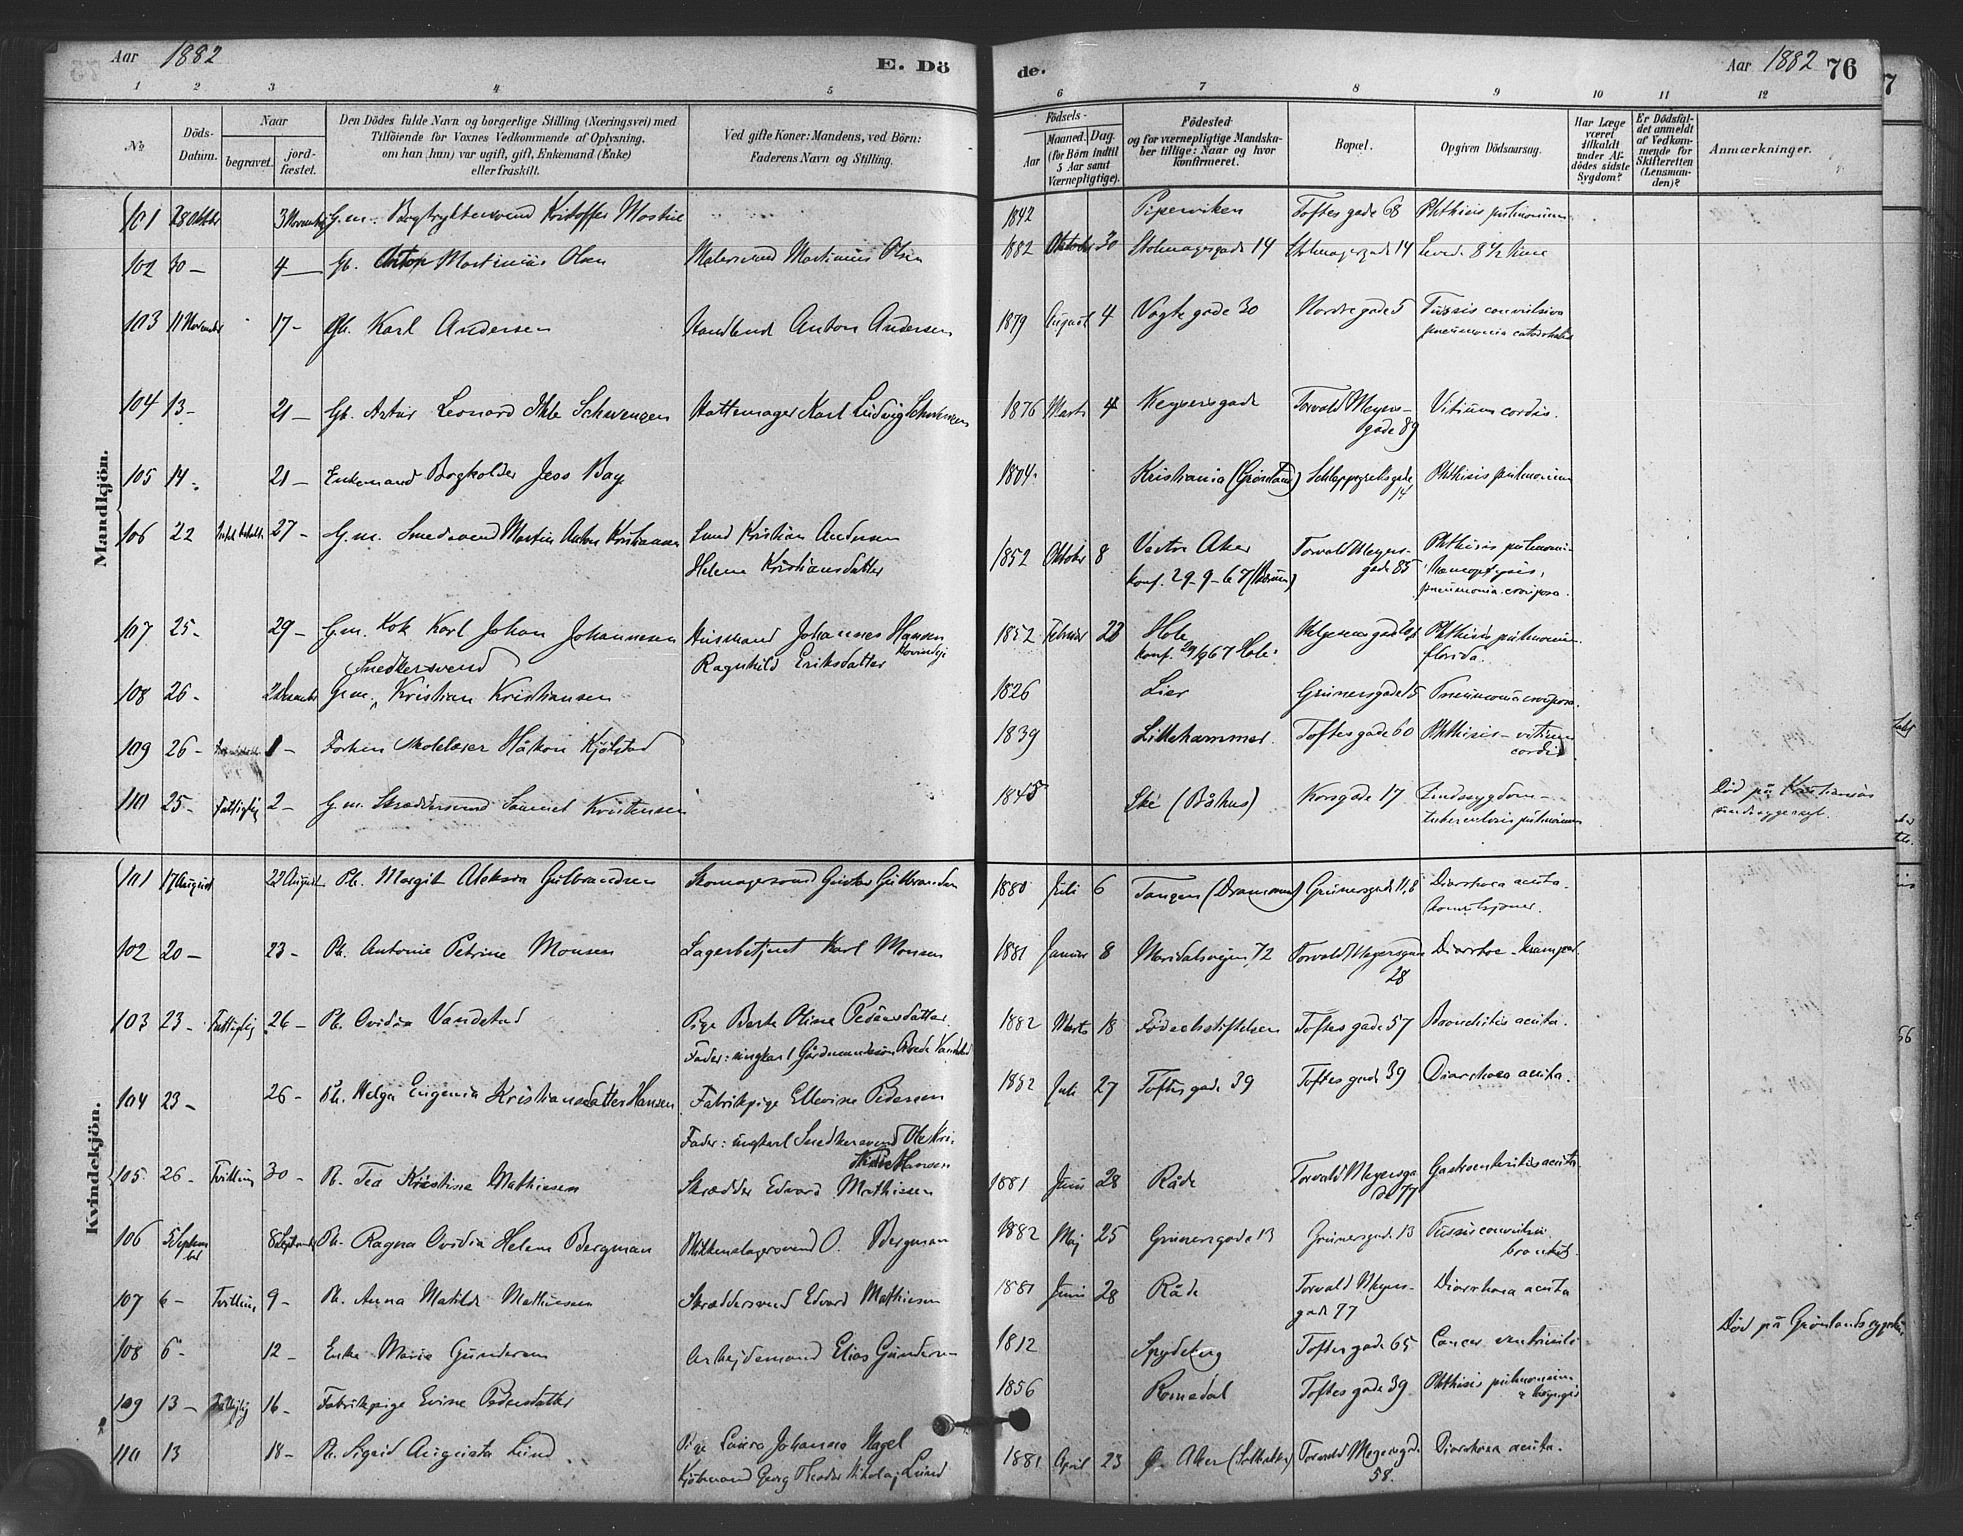 Aar 1882
E. Dö
de.
Aar 1882 76
1 2 3 4 5 6 7 8 9 10 11 12
No
Döds-
Datum.
Naar
begravet.
jord-
fæstet.
Den Dödes fulde Navn og borgerlige Stilling (Næringsvei) med
Tilföiende for Voxnes Vedkommende af Oplysning,
om han (hun) var ugift, gift, Enkemand (Enke)
eller fraskilt.
Ved gifte Koner: Mandens, ved Börn:
Faderens Navn og Stilling.
Födsels-
Aar
Maaned. Dag.
(for Börn indtil
5 Aar samt
Værnepligtige).
Födested
og for værnepligtige Mandska-
ber tillige: Naar og hvor
konfirmeret.
Bopæl.
Opgiven Dödsaarsag.
Har Læge
været
tilkaldt
under Af-
dödes sidste
Sygdom?
Er Dödsfal-
det anmeldt
af Vedkom-
mende for
Skifteretten
(Lensman-
den)?
Anmærkninger.
Mandkjön.
101 28 Oktbr 3 November G.m. Kristoffer 1842 Piperviken Toftes gade 68 Phthisis pulmonum
102 30 - 4 - Gb. Anton Martinius Olsen Malersvend Martinius Olsen 1882 Oktober 30 Stolmagergade 14 Stolmagergade 14 Leved. 8½ time
103 11 November 17 - Gb. Karl Andersen Anton Andersen 1879 August 4 Vogts gade 30 Nordre gade 5 Tussis convulsiva
pneumonia catarrhalis
104 13 - 21 - Gb. Artur Leonard Ihle Schwenzen Hattemager Karl Ludvig Schwenzen 1876 Marts 4 Keysersgade Torvald Meyers-
gade 89 Vitium cordis.
105 14 - 21 - Enkemand Bogholder Jess Bay 1804 Kristiania (Grönland) 14 Phthisis pulmonum
106 22 27 - G.m. Smedsvend Martin Anton Kristiansen Smed Kristian Andersen
Helene Kristiansdatter 1852 Oktober 8 Vestre Aker
konf. 29-9-67 Torvald Meyers-
gade 85 Phthisis pulmonum
Hæmoptysis,
pneumonia crouposa.
107 25 - 29 - G.m. Kok Karl Johan Johannesen Husmand Johannes Hansen
Ragnhild Eriksdatter 1852 Februar Hole
konf. 29/9 67 Hole Phthisis pulmonum
florida.
108 26 - 2 December G.m. Snedkersvend Kristian Kristiansen 1826 Lier Grünersgade 15 Pneumonia crouposa.
109 26 - 1 - Forhen skolelærer Håkon Kjölstad 1839 Lillehammer Toftes gade 60 Phthisis - vitium
cordis
110 25 - Fattiglig 2 - G.m. Skræddersvend Samuel Kristensen 1845 (Båhus) Korsgade 17 Sindssygdom -
tuberculosis pulmonum Död på Kristiania
sindssygeasyl.
Kvindekjön.
101 17 August 22 August Pb. Margit Aleksa Gulbrandsen Skomagersvend Gustav Gulbrandsen 1880 Juli 6 Tangen (Drammen) Grünersgade 11, 8 Diarrhoea acuta.
102 20 - 23 - Pb. Antonie Petrine Monsen Lagerbetjent Karl Monsen 1881 Januar 8 Maridalsveien 72 Torvald Meyersgade
28 Diarrhoe - kramper.
103 23 - Fattiglig 26 - Pb. Ovidia Vandstad Pige Berte Oline Pedersdatter.
Fader: ungkarl 1882 Marts 18 Födselsstiftelsen Toftes gade 57 Bronchitis acuta.
104 23 - 26 - Pb. Helga Eugenia Kristiansdatter Hansen Fabrikpige Ellevine Pedersen
Fader: ungkarl Snedkersvend Ole Kri-
Hansen 1882 Juli 27 Toftes gade 39 Toftes gade 39 Diarrhoea acuta.
105 26 - Tvilling 30 - Pb. Tea Kristine Mathiesen Skrædder Edvard Mathiesen 1881 Juni 28 Råde Torvald Meyersga-
de 77 Gastroenteritis acuta
106 5 Septem-
ber 8 Septembr Pb. Ragna Ovidia Helene Bergman Blikkenslagersvend O. Bergman 1882 Maj 25 Grünersgade 13 Grünersgade 13 Tussis convulsiva
107 6 - Tvilling 9 - Pb. Anna Matilde Mathiesen Skræddersvend Edvard Mathiesen 1881 Juni 28 Råde Torvald Meyers-
gade 77 Diarrhoea acuta
108 6 - 12 - Enke Marie Gundersen Arbejdsmand Elias Gundersen 1812 Spydeberg Toftes gade 65 Cancer ventriculi Död på Grönlands sygehus
109 13 - Fattiglig 16 - Fabrikpige Evine Pedersdatter 1856 Romedal Toftes gade 39 Phthisis pulmonum
110 13 18 - Pb. Sigrid Augusta Lund Pige Laura Johanna Nagel
Kjöbmand Georg Theodor Nikolaj Lund 1881 April 23 Ø. Aker Torvald Meyersgade
58. Diarrhoea acuta.